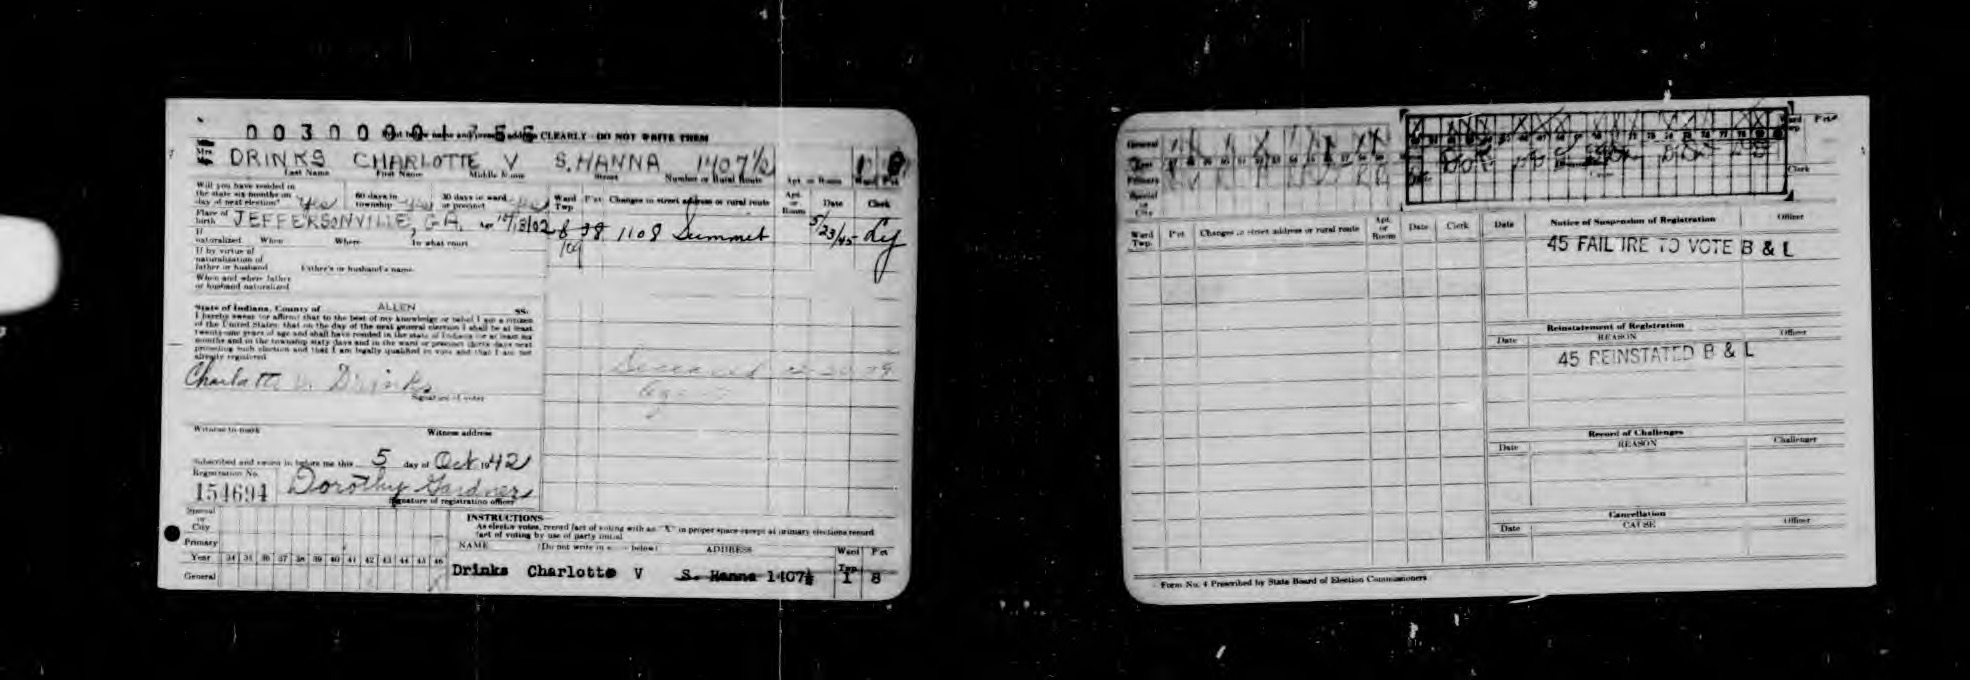 0030000
CLEARLY - DO NOT WRITE THEM
Mrs. DRINKS CHARLOTTE V S. HANNA 1407½ 1 8
Last Name First Name Middle Name Street Number or Rural Route Apt. or Room Ward Pct
Will you have resided in the state six months on day of next election? Yes 60 days in township yes 30 days in ward or precinct yes
Ward Twp. Pct Changes in street address or rural route Apt. or Room Date Clerk
Place of birth JEFFERSONVILLE, GA.
8 38 1108 Summet 5/23/45
If naturalized When Where In what court
If by virtue of naturalization of father or husband Father's or husband's name
When and where father or husband naturalized
State of Indiana, County of ALLEN SS:
I hereby swear (or affirm) that to the best of my knowledge or belief I am a citizen
of the United States; that on the day of the next general election I shall be at least
twenty-one years of age and shall have resided in the state of Indiana for at least six
months and in the township sixty days and in the ward or precinct thirty days next
preceding such election and that I am legally qualified to vote and that I am not
already registered
Deceased
Charlotte V. Drinks
Signature of voter
Witness to mark Witness address
Subscribed and sworn to before me this 5 day of Oct 1942
Registration No.
154694 Dorothy Gardner
Signature of registration officer
Special or City
Primary
Year 34 35 36 37 38 39 40 41 42 43 44 45 46
General
INSTRUCTIONS
As elector votes, record fact of voting with an "X" in proper space except at primary elections record
fact of voting by use of party initial
NAME (Do not write in below) ADDRESS Ward Twp. Pct
Drinks Charlotte V S. Hanna 1407½ 1 8
General
Primary
Special or City
Ward Twp. Pct
Clerk
Ward Twp. Pct Changes in street address or rural route Apt. or Room Date Clerk
Date Notice of Suspension of Registration Officer
45 FAILURE TO VOTE B & L
Reinstatement of Registration
Date REASON Officer
45 REINSTATED B & L
Record of Challenges
Date REASON Challenger
Cancellation
Date CAUSE Officer
Form No. 4 Prescribed by State Board of Election Commissioners